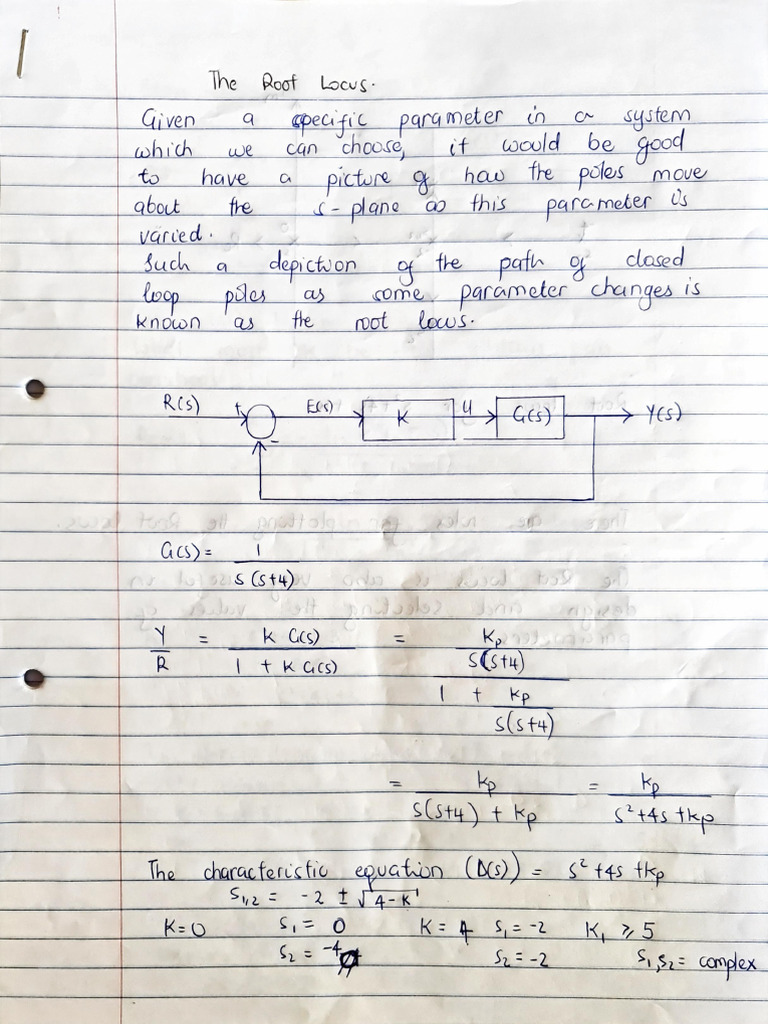 The Root Locus.
Given a specific parameter in a system
which we can choose, it would be good
to have a picture of how the poles move
about the s-plane as this parameter is
varied.
Such a depiction of the path of closed
loop poles as some parameter changes is
known as the root locus.
R(s) + - E(s) K U G(s) Y(s)
G(s) = 1 / s(s+4)
Y/R = K G(s) / (1 + K G(s)) = (Kp / s(s+4)) / (1 + Kp / s(s+4))
= Kp / (s(s+4) + Kp) = Kp / (s² + 4s + Kp)
The characteristic equation (D(s)) = s² + 4s + Kp
s₁,₂ = -2 ± √(4 - K)
K = 0 s₁ = 0 K = 4 s₁ = -2 K₁ ≥ 5
s₂ = -4 s₂ = -2 s₁, s₂ = complex